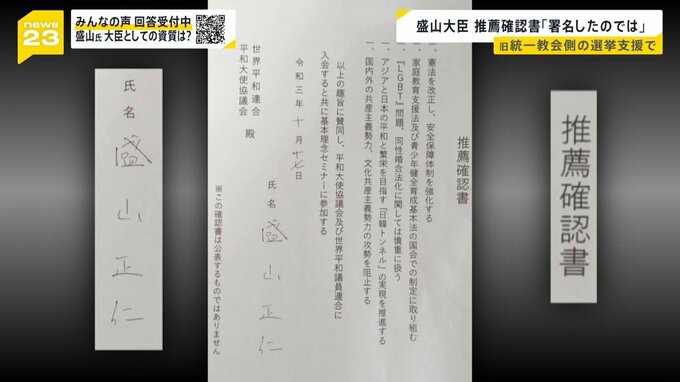 news
23
みんなの声 回答受付中
盛山氏 大臣としての資質は?
盛山大臣 推薦確認書「署名したのでは」
旧統一教会側の選挙支援で
推薦確認書
推薦確認書
一、憲法を改正し、安全保障体制を強化する
一、家庭教育支援法及び青少年健全育成基本法の国会での制定に取り組む
一、『LGBT』問題、同性婚合法化に関しては慎重に扱う
一、アジアと日本の平和と繁栄を目指す「日韓トンネル」の実現を推進する
一、国内外の共産主義勢力、文化共産主義勢力の攻勢を阻止する
以上の趣旨に賛同し、平和大使協議会及び世界平和議員連合に
入会すると共に基本理念セミナーに参加する
令和三年 十月十七日
氏名 盛山正仁
世界平和連合
平和大使協議会 殿
※この確認書は公表するものではありません
氏名 盛山正仁